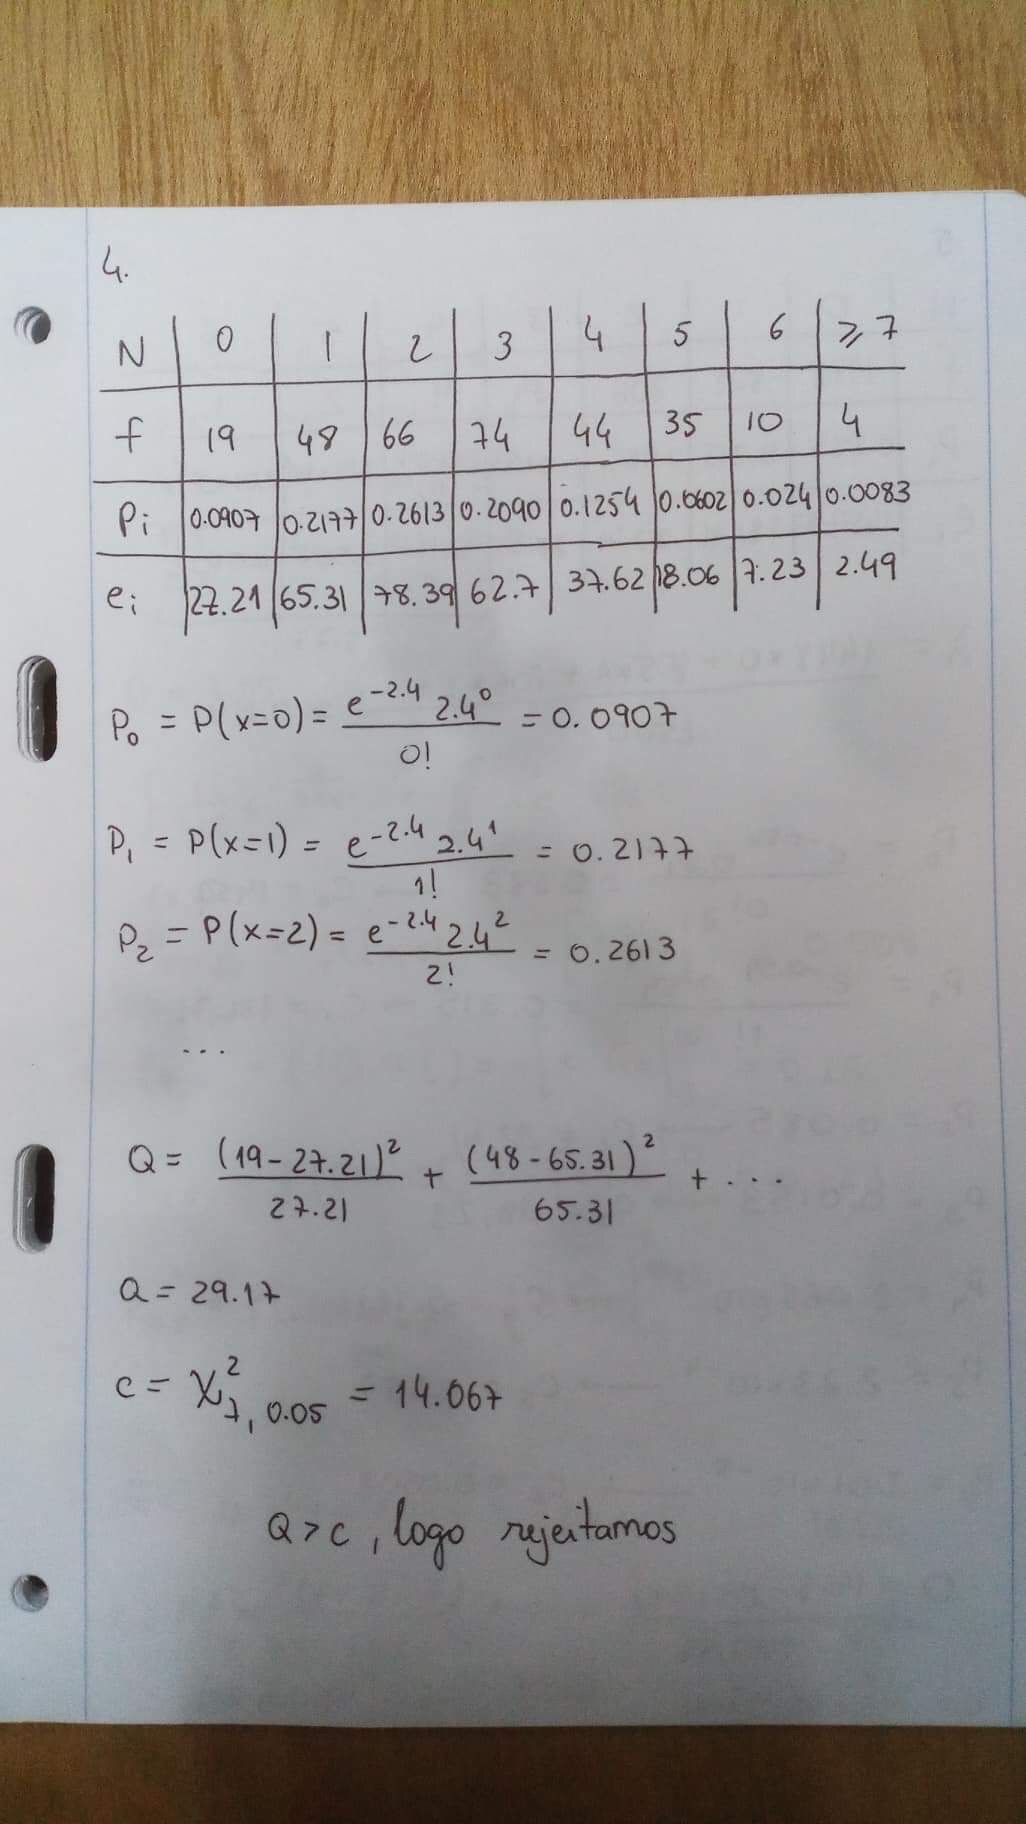 4.
N 0 1 2 3 4 5 6 ⩾7
f 19 48 66 74 44 35 10 4
Pi 0.0907 0.2177 0.2613 0.2090 0.1254 0.0602 0.024 0.0083
ei 27.21 65.31 78.39 62.7 37.62 18.06 7.23 2.49
P₀ = P(x=0) = e^-2.4 2.4^0 / 0! = 0.0907
P₁ = P(x=1) = e^-2.4 2.4^1 / 1! = 0.2177
P₂ = P(x=2) = e^-2.4 2.4^2 / 2! = 0.2613
...
Q = (19-27.21)² / 27.21 + (48-65.31)² / 65.31 + ...
Q = 29.17
c = χ²7, 0.05 = 14.067
Q > c, logo rejeitamos